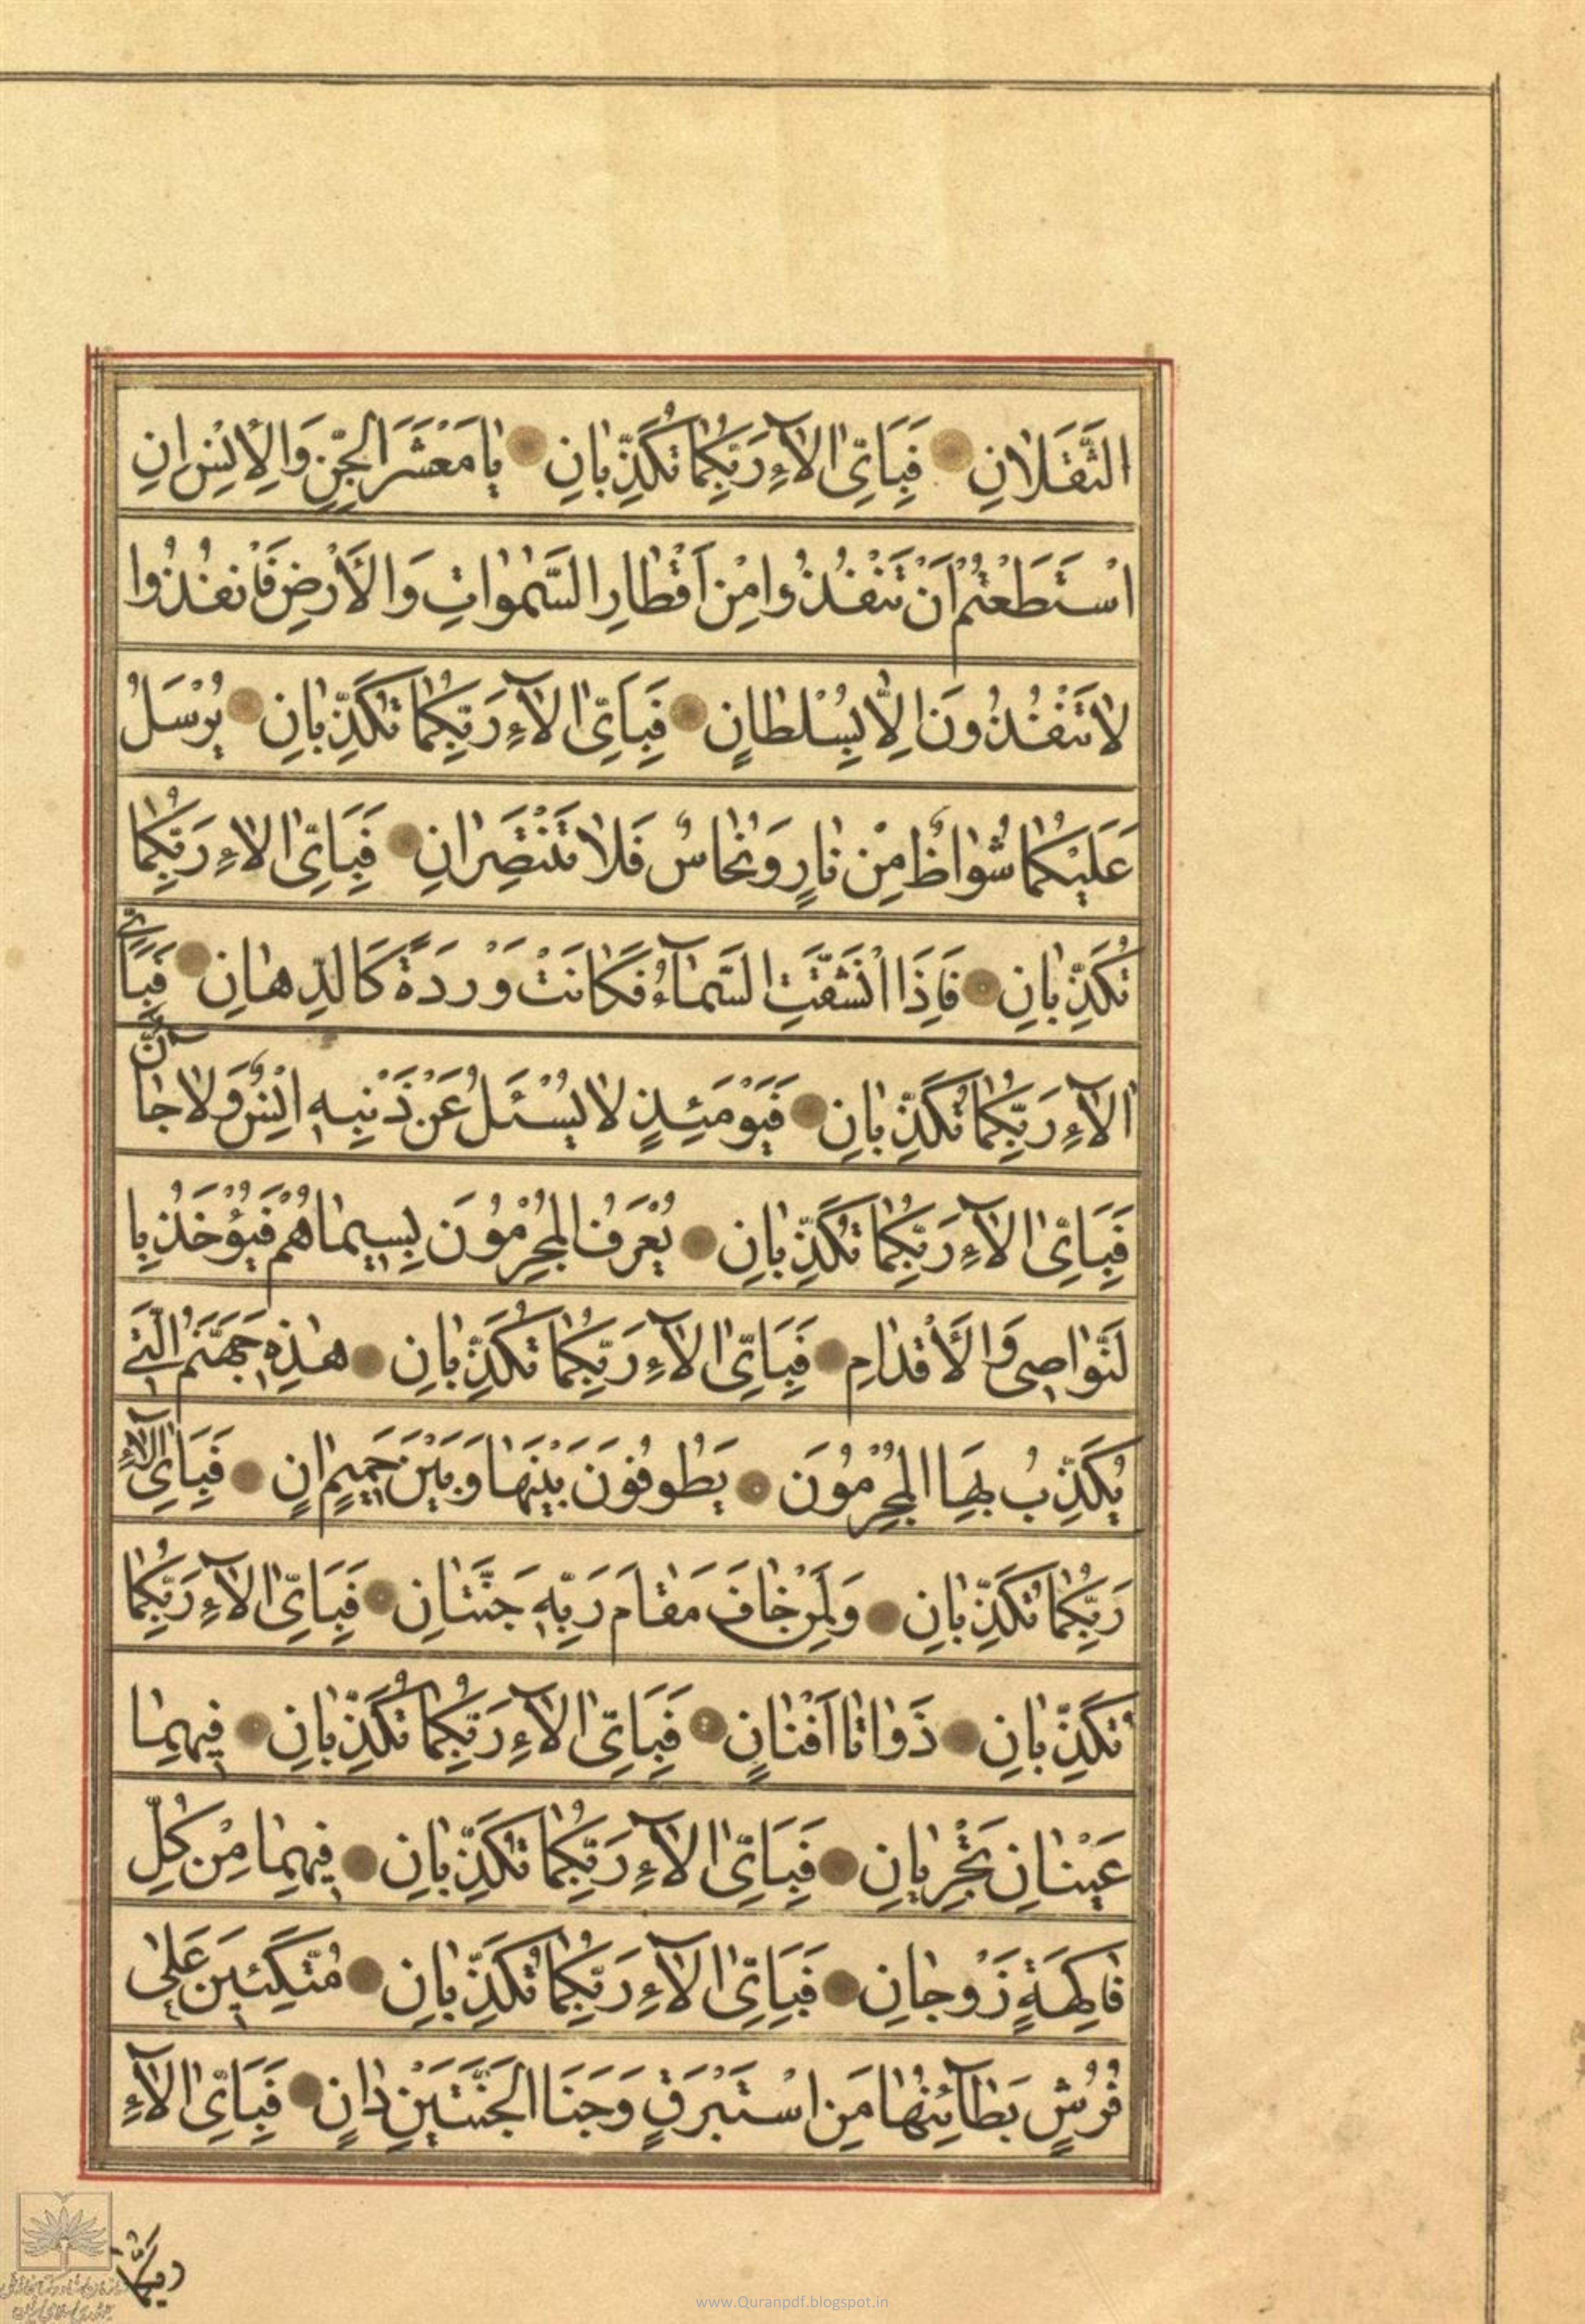 الثَّقَلَانِ فَبِاَىِّ اٰلَآءِ رَبِّكُمٰا تُكَذِّبٰانِ يٰا مَعْشَرَ الْجِنِّ وَالْاِنْسِ اِنِ
اسْتَطَعْتُمْ اَنْ تَنْفُذُوا مِنْ اَقْطٰارِ السَّمٰوٰاتِ وَالْاَرْضِ فَانْفُذُوا
لٰا تَنْفُذُونَ اِلّٰا بِسُلْطٰانٍ فَبِاَىِّ اٰلَآءِ رَبِّكُمٰا تُكَذِّبٰانِ يُرْسَلُ
عَلَيْكُمٰا شُوٰاظٌ مِنْ نٰارٍ وَنُحٰاسٌ فَلٰا تَنْتَصِرٰانِ فَبِاَىِّ اٰلٰاءِ رَبِّكُمٰا
تُكَذِّبٰانِ فَاِذَا انْشَقَّتِ السَّمَآءُ فَكٰانَتْ وَرْدَةً كَالدِّهٰانِ فَبِاَىِّ
اٰلَآءِ رَبِّكُمٰا تُكَذِّبٰانِ فَيَوْمَئِذٍ لٰا يُسْئَلُ عَنْ ذَنْبِهِ اِنْسٌ وَلٰا جٰآنٌّ
فَبِاَىِّ اٰلَآءِ رَبِّكُمٰا تُكَذِّبٰانِ يُعْرَفُ الْمُجْرِمُونَ بِسِيمٰاهُمْ فَيُؤْخَذُ بِا
لنَّوٰاصِى وَالْاَقْدٰامِ فَبِاَىِّ اٰلَآءِ رَبِّكُمٰا تُكَذِّبٰانِ هٰذِهِ جَهَنَّمُ الَّتِى
يُكَذِّبُ بِهَا الْمُجْرِمُونَ يَطُوفُونَ بَيْنَهٰا وَبَيْنَ حَمِيمٍ اٰنٍ فَبِاَىِّ اٰلَآءِ
رَبِّكُمٰا تُكَذِّبٰانِ وَلِمَنْ خٰافَ مَقٰامَ رَبِّهِ جَنَّتٰانِ فَبِاَىِّ اٰلَآءِ رَبِّكُمٰا
تُكَذِّبٰانِ ذَوٰاتٰا اَفْنٰانٍ فَبِاَىِّ اٰلَآءِ رَبِّكُمٰا تُكَذِّبٰانِ فِيهِمٰا
عَيْنٰانِ تَجْرِيٰانِ فَبِاَىِّ اٰلَآءِ رَبِّكُمٰا تُكَذِّبٰانِ فِيهِمٰا مِنْ كُلِّ
فٰاكِهَةٍ زَوْجٰانِ فَبِاَىِّ اٰلَآءِ رَبِّكُمٰا تُكَذِّبٰانِ مُتَّكِئِينَ عَلٰى
فُرُشٍ بَطَآئِنُهٰا مِنْ اِسْتَبْرَقٍ وَجَنَا الْجَنَّتَيْنِ دٰانٍ فَبِاَىِّ اٰلَآءِ
رَبِّكُمَا
www.Quranpdf.blogspot.in